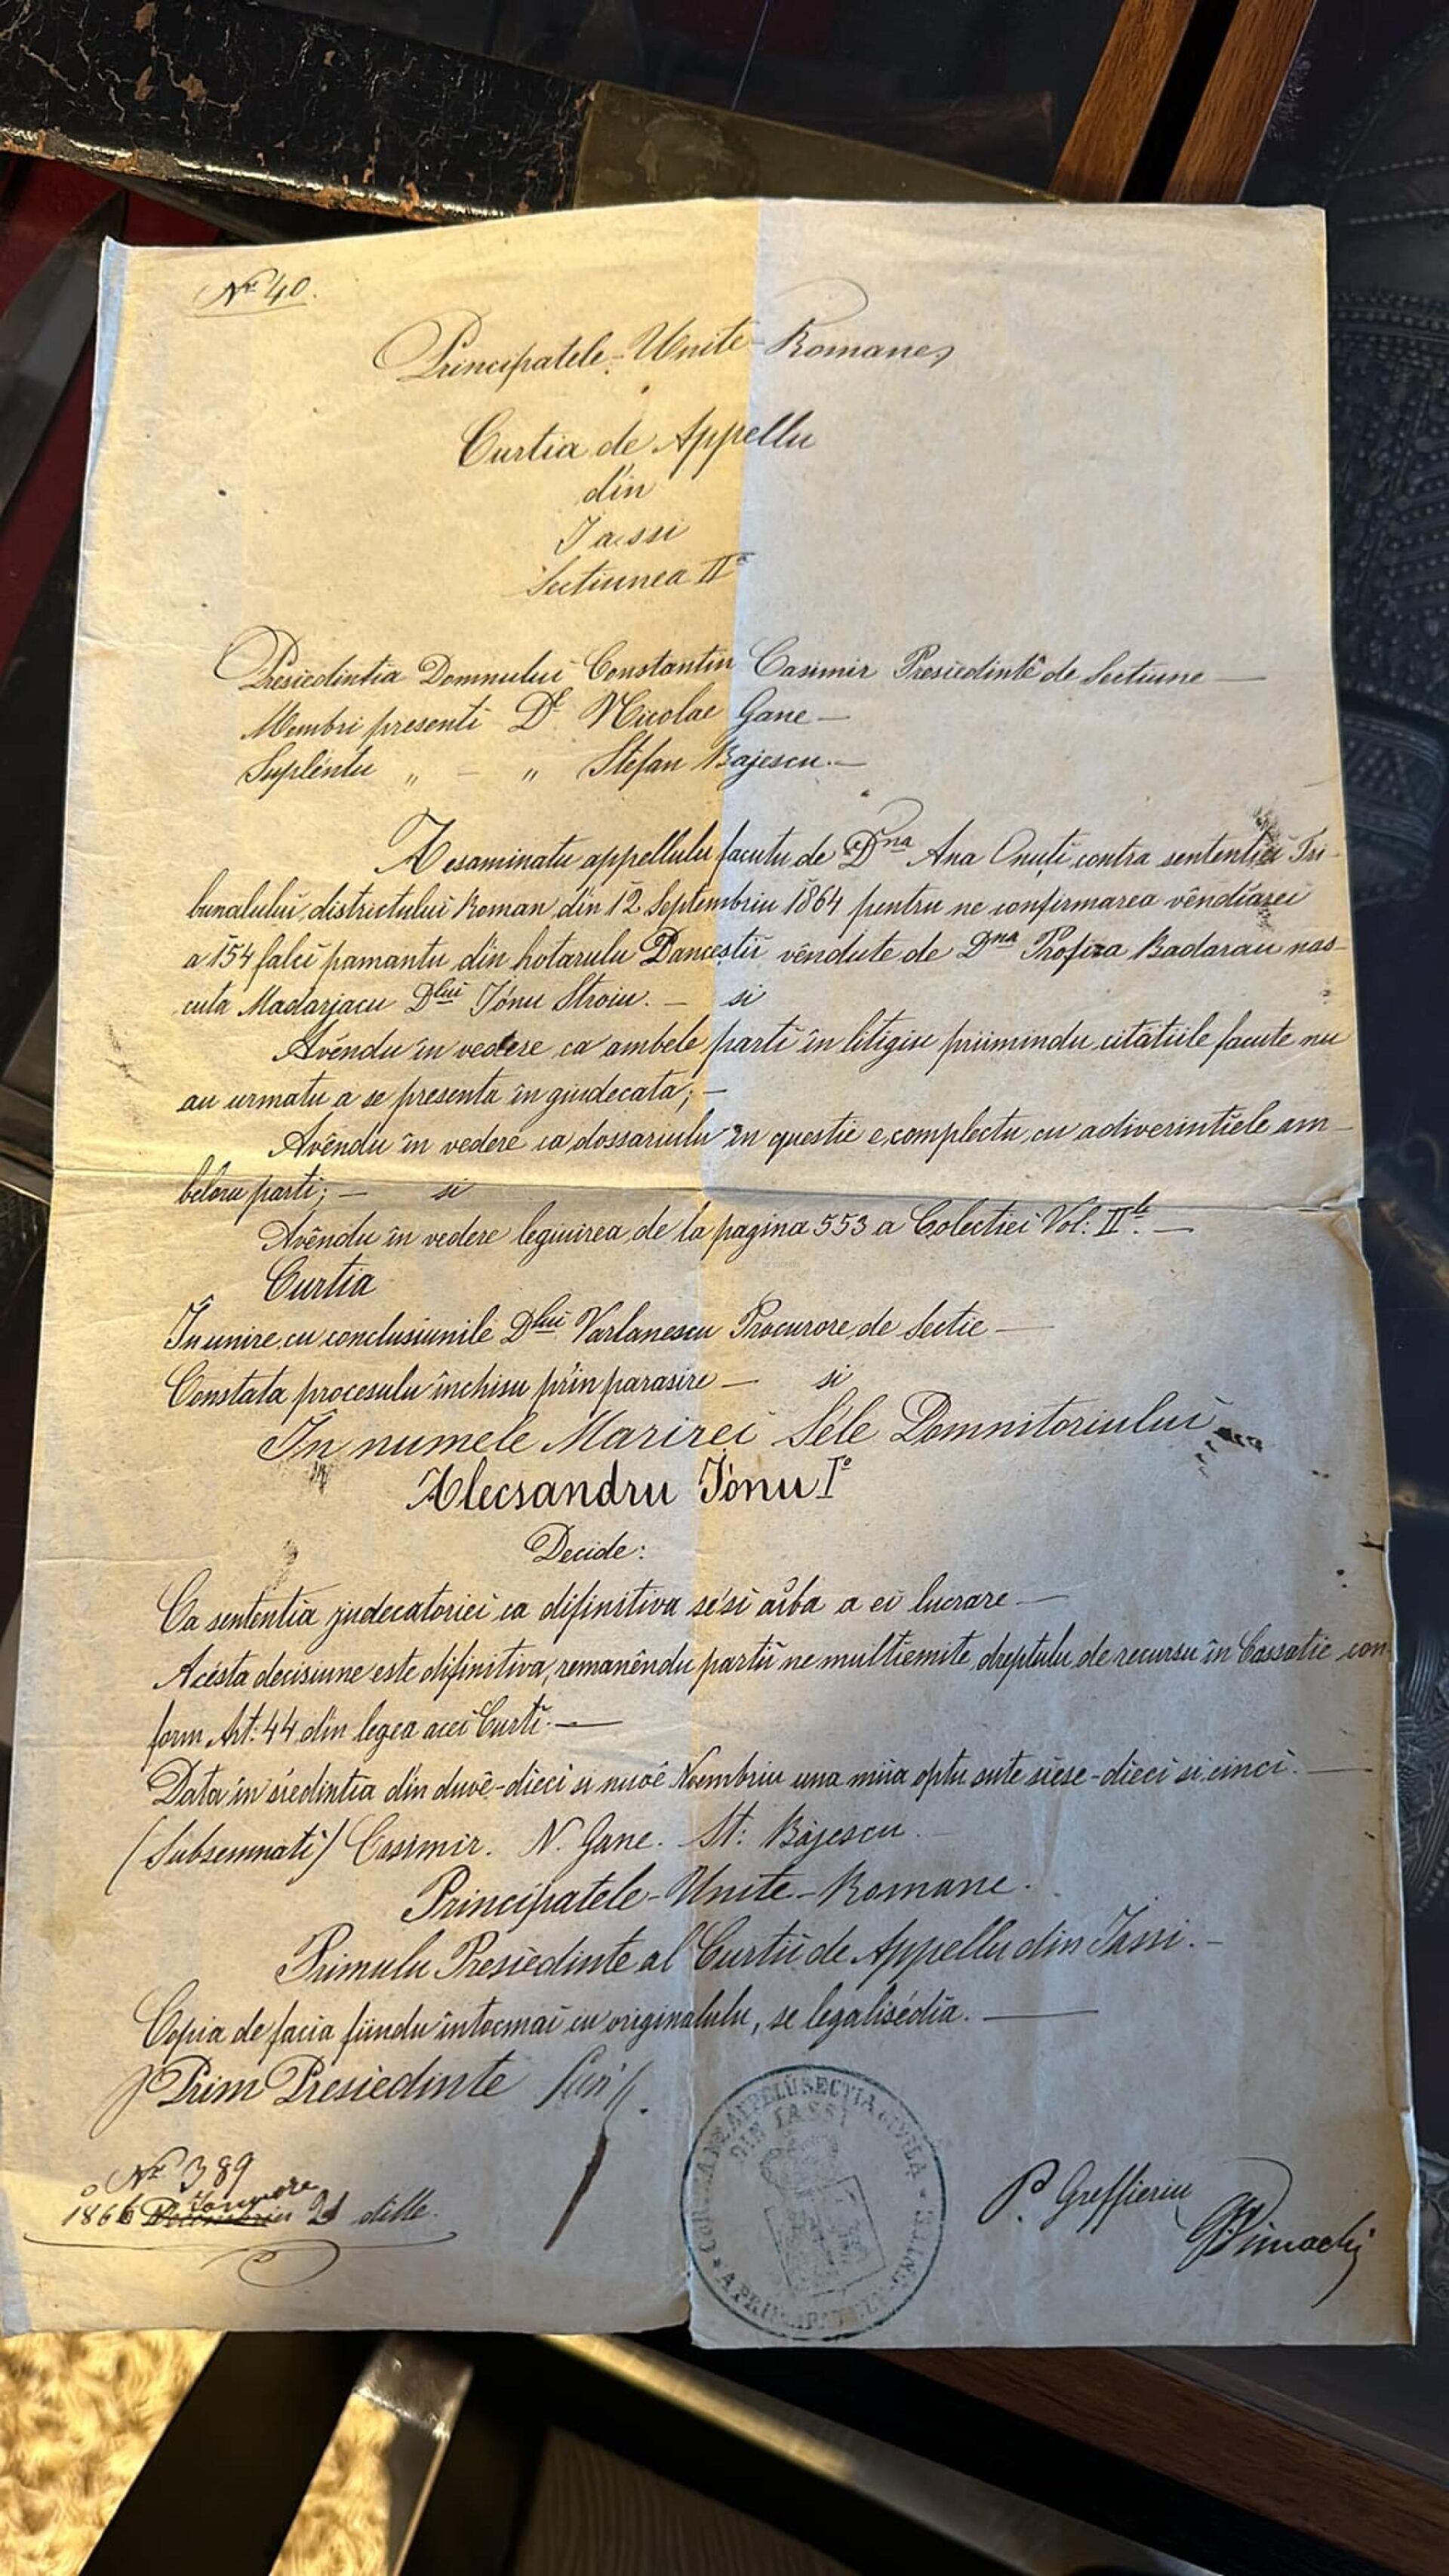 Nr 40.
Principatele-Unite Romane
Curtia de Appellu
din
Iassi
Sectiunea IIa
Presiedintia Domnului Constantin Casimir Presiedinte de Sectiune —
Membri presenti Dl Nicolae Gane —
Suplentu „ — „ Stefan Bajescu. —
Aesaminatu appellulu facutu de Dna Ana Onuți contra sentenției Tri-
bunalului districtului Roman din 12 Septembriu 1864 pentru ne confirmarea vênđiarei
a 154 falci pamantu din hotarulu Dancestii vêndute de Dna Profira Badarau nas-
cuta Madarjacu Dlui Iónu Stroiu. — si
Avêndu în vedere ca ambele parti în litigiu priimindu citatiile facute nu
au urmatu a se presenta în giudecata; —
Avêndu în vedere ca dossariulu în questie e complectu cu adiverintiele am-
beloru parti; — si
Avêndu în vedere leguirea de la pagina 553 a Colectiei Vol: IIle. —
Curtia
În unire cu conclusiunile Dlui Varlanescu Procurore de Sectie —
Constata procesulu închisu prin parasire — si
În numele Marirei Séle Domnitoriului
Alecsandru Iónu Io
Decide:
Ca sententia judecatoriei ca difinitiva se'si aiba a ei lucrare —
Acésta decisiune este difinitiva, remanêndu partii ne multiemite dreptulu de recursu în Cassatie con-
form Art: 44 din legea acei Curti. —
Data în siedintia din duvê-dieci si nuoê Noembriu una miia optu sute siese-dieci si cinci. —
(Subsemnati) Casimir. N. Gane. St: Bajescu
Principatele-Unite-Romane.
Primulu Presiedinte al Curtii de Appellu din Iassi. —
Copia de facia fiindu întocmai cu originalulu, se legalisédia. —
p Prim Presiedinte
Nr 389
Ianuare
1866 Decembriu 21 dille.
CURTEA DE APPELU SECTIA CIVILA
DIN IASSI
P. Greffieriu